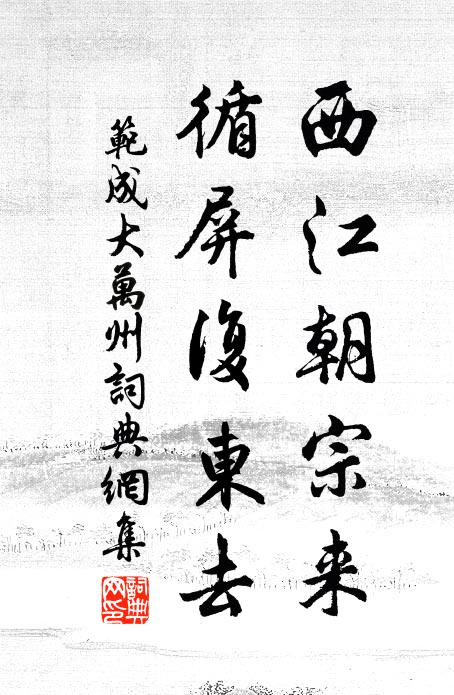 西江朝宗来
循屏復東去
範成大萬州詞典網集
詞典網印